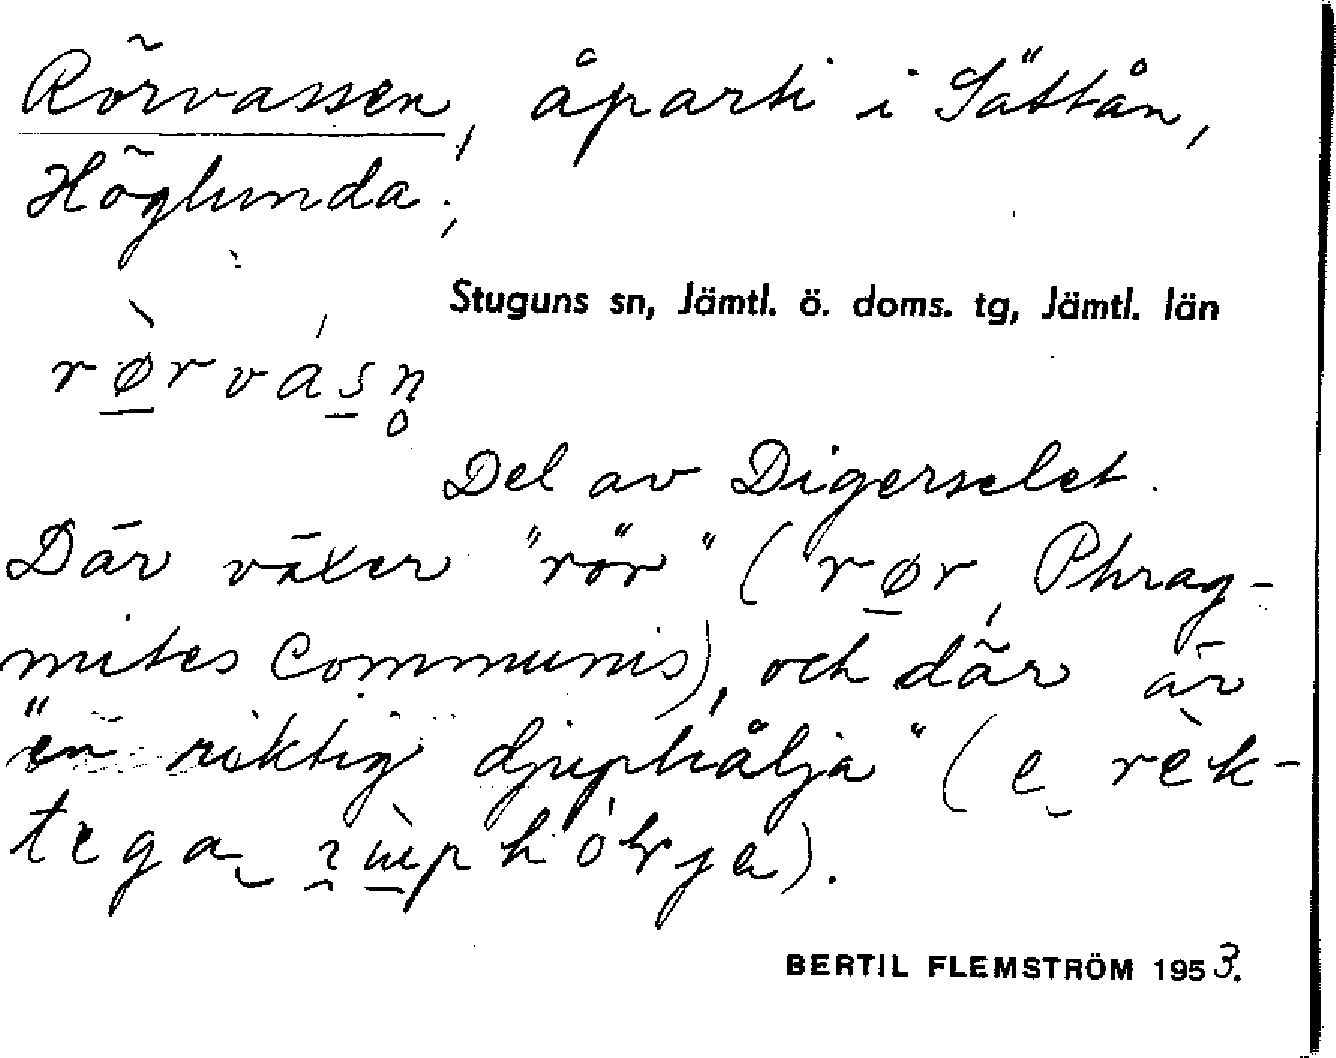 Rörvassen, åparti i Sättån,
Höglunda;
Stuguns sn, Jämtl. ö. doms. tg, Jämtl. län
rø̀rvásn̥
Del av Digerselet.
Där växer "rör" (rør, Phrag-
mites communis), och där är
"en riktig djuphålja" (e rèk-
tega
BERTIL FLEMSTRÖM 1953.